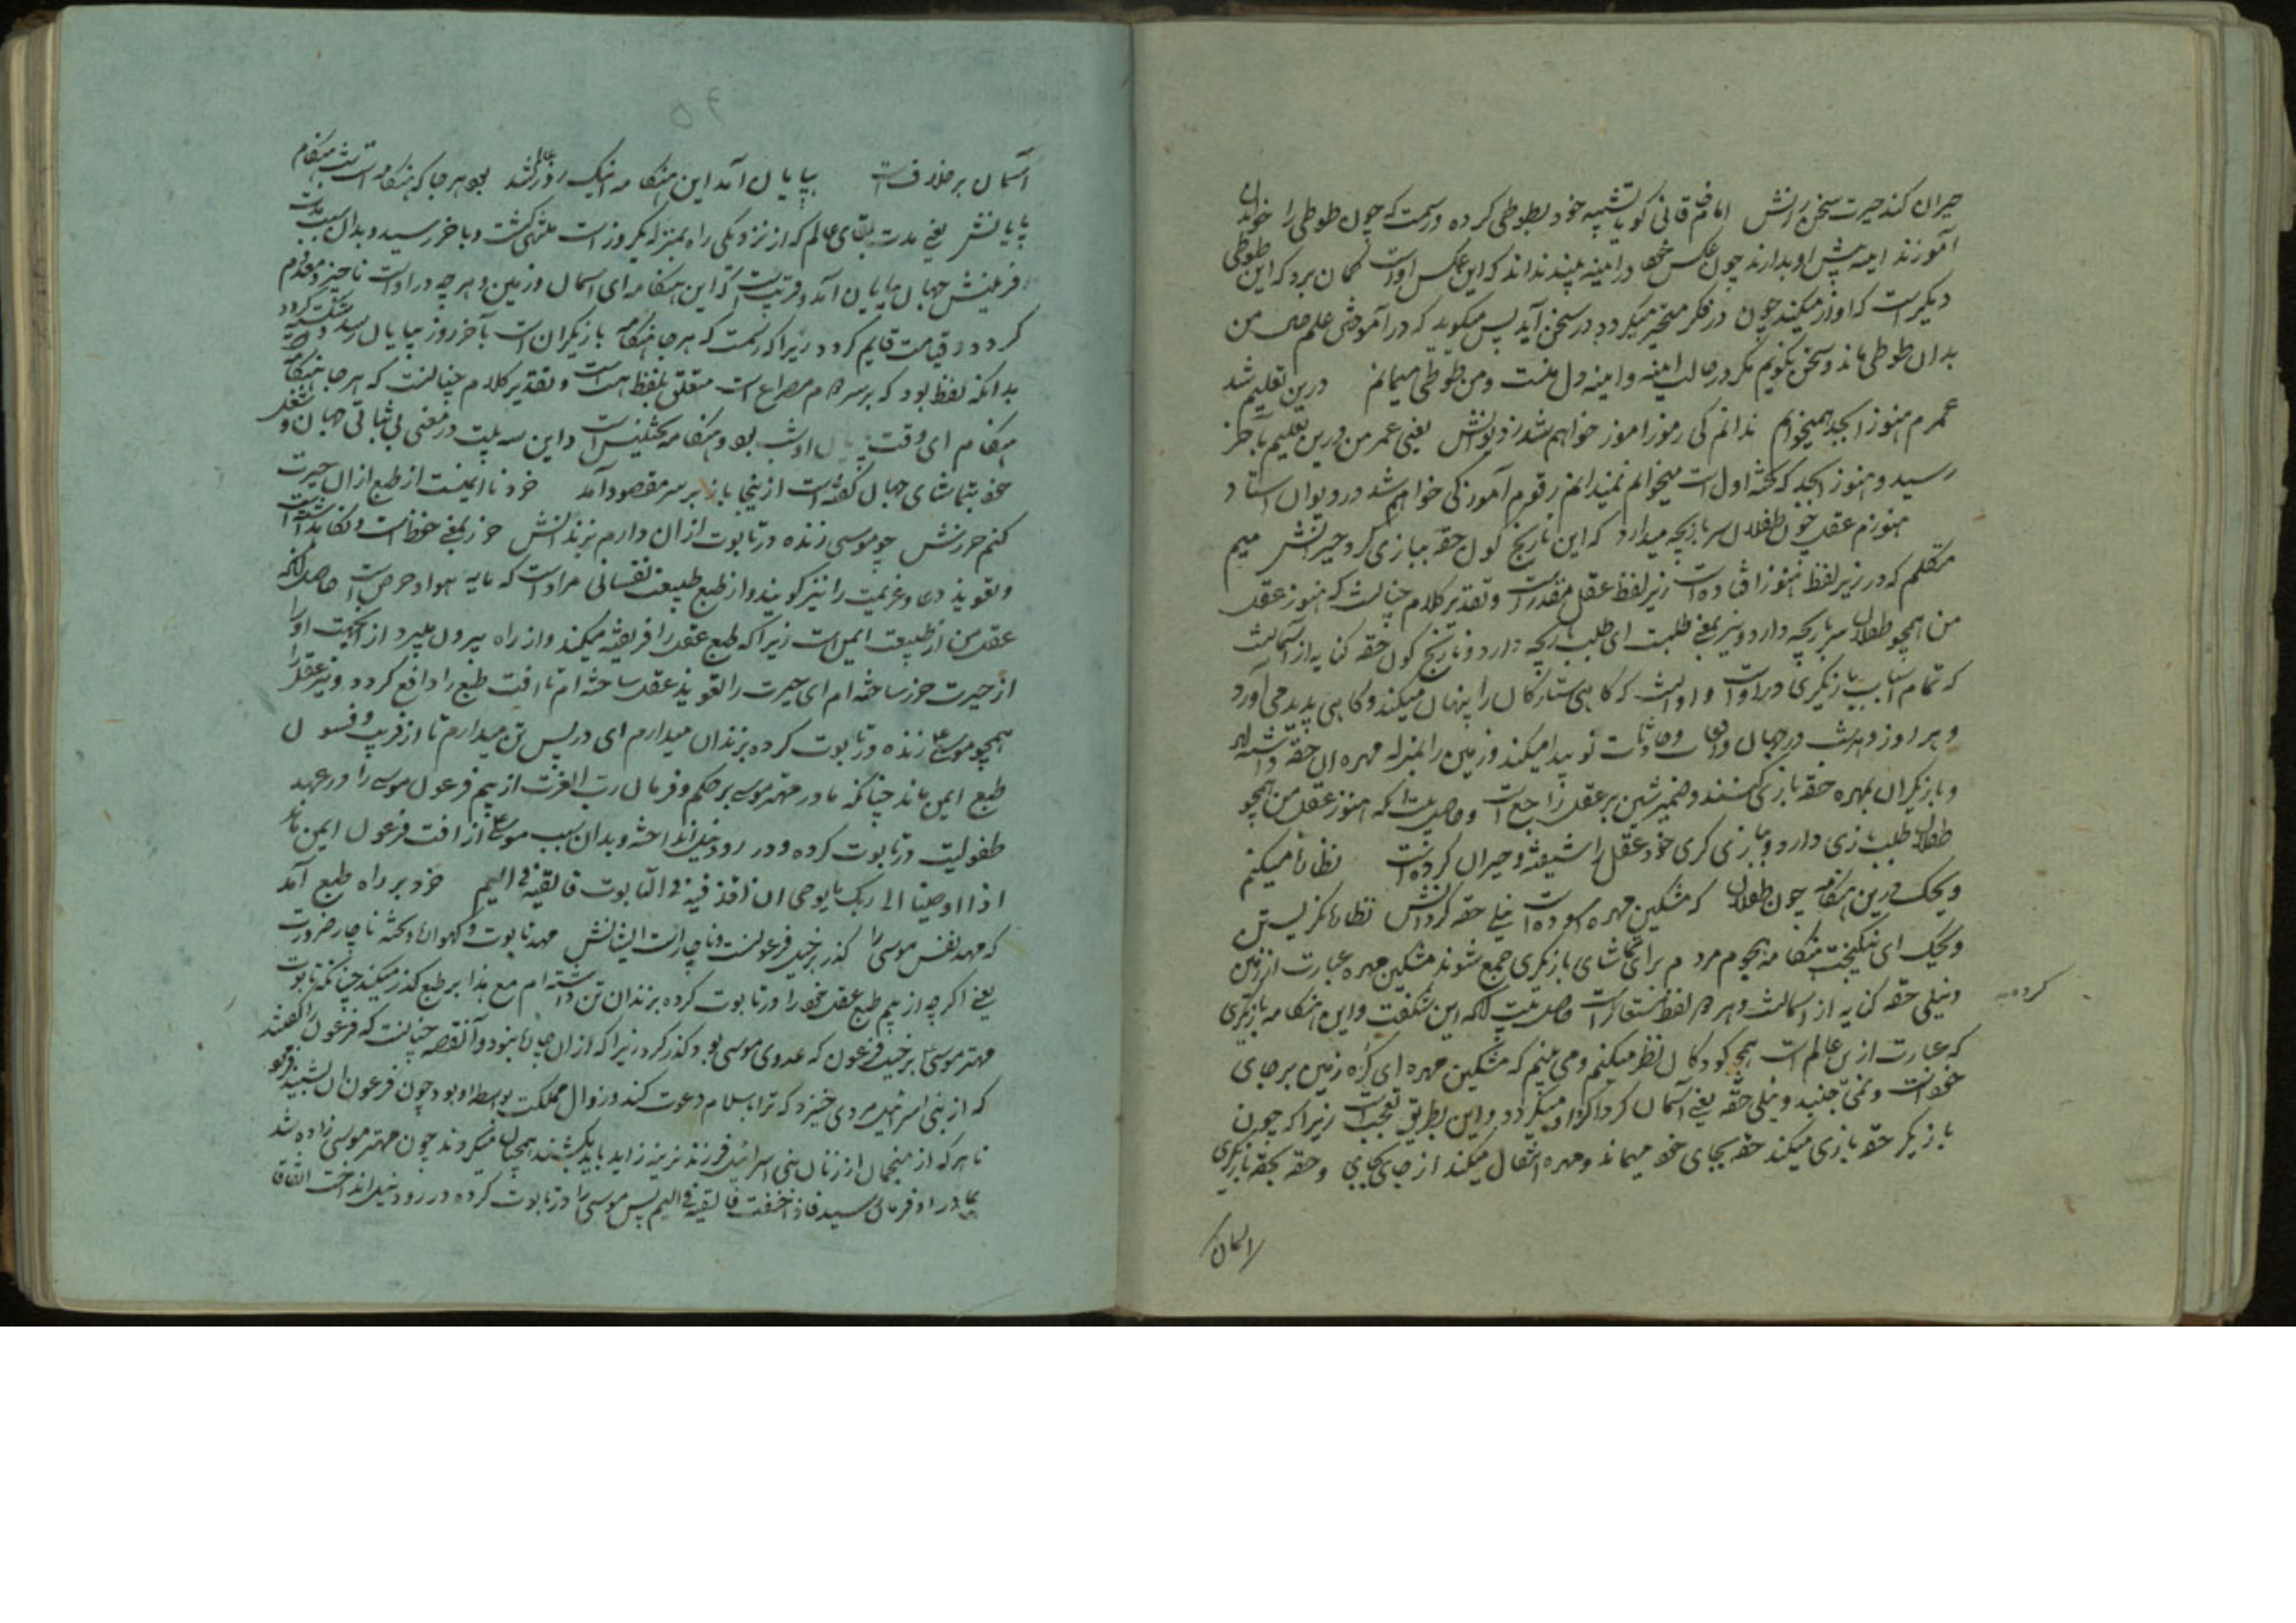 حیران کند حیرت سخن رانش امام خاقانی گوید تشبیه خود بطوطی کرده و رسمست که چون طوطی را خواندن
آموزند اینه پیش او بدارند چون عکس خود در اینه ببیند نداند که این عکس اوست گمان برد که این طوطی
دیگرست که اواز میکند چون در فکر متحیر میگردد در سخن آید پس میگوید که در آموختن علم من
بدان طوطی ماند و سخن نگویم مگر در حالت اینه و اینه دل منست و من طوطی میمانم درین تعلیم شد
عمرم هنوز ابجد همیخوانم ندانم کی رموز اموز خواهم شد ز دیوانش یعنی عمر من درین تعلیم بآخر
رسید و هنوز ابجد که تخته اول است میخوانم نمیدانم رقوم آموز کی خواهم شد در دیوان استاد
هنوزم عقل چون طفلان سر بازیچه میدارد که این نارنج گون حقه ببازی کرد حیرانش میم
متکلم که در زیر لفظ هنوز افتاده است زیر لفظ عقل مقدرست و تقدیر کلام چنانست که هنوز عقل
من همچو طفلان سر بازیچه دارد و سر بمعنی طلبست ای طلب بازیچه دارد و نارنج گون حقه کنایه از آسمانست
که تمام اسباب بازیگری در اوست و اوست که گاهی ستارگان را پنهان میکند و گاهی پدید می آورد
و هر روز و هر شب در جهان واقعات و حادثات نو پیدا میکند و زمین را بمنزله مهره ان حقه داشته اند
و بازیگران بمهره حقه بازی کنند و ضمیر شین بر عقل راجع است و حاصل بیت انکه هنوز عقل من همچو
طفلان طلب بازی دارد و ببازی گری خود عقل را شیفته و حیران کرده است نظاره میکنم
ویحک درین هنگامه چون طفلان که مشکین مهره اسوده است نیلی حقه گردانش نظاره نگریستن
ویحک ای نیکبخت هنگامه هجوم مردم برای تماشای بازیگری جمع شوند مشکین مهره عبارت از زمین
و نیلی حقه کنایه از اسمانست و هر دو لفظ مستعارست حاصل بیت انکه این شگفت و این هنگامه بازیگری
کرده
که عبارت ازین عالم است همچو کودکان نظر میکنم و می بینم که مشکین مهره ای کره زمین بر جای
خودست و نمی جنبد و نیلی حقه یعنی آسمان گرداگرد او میگردد و این بطریق تعجب است زیرا که چون
بازیگر حقه بازی میکند حقه بجای خود میماند و مهره انتقال میکند از جای بجای و حقه بحقه بازیگری
اسمان
۶۵
آسمان برخلاف است بپایان آمد این هنگامه اینک روز عالم شد بود هر جا که هنگامه است شب هنگام
پایانش یعنی مدت بقای عالم که از نزدیکی راه بمنزله یکروز است منتهی گشت و باخر رسید و بدان سبب مدت
فرینش جهان بپایان آمد و قریبست که این هنگامه ای اسمان و زمین و هر چه در اوست ناچیز و معدوم
گردد و قیامت قایم گردد زیرا که رسمست که هر جا هنگامه بازیگران است بآخر روز بپایان رسد و شکسته گردد
بدانکه لفظ بود که بر سر دوم مصراع است متعلق بلفظ هست است و تقدیر کلام چنانست که هر جا هنگامه
هنگام ای وقت پایان او شب بود و هنگامه تجنیس است و این سه بیت در معنی بی ثباتی جهان و شغل
خود بتماشای جهان گفته است از ینجا باز بر سر مقصود آمد خرد نا ایمنست از طبع ازان حیرت
کنم حرزش چو موسی زنده در تابوت ازان دارم بزندانش حرز بمعنی حفظست و نگاهداشت
و تعویذ دعا و عزیمت را نیز گویند و از طبع طبیعت نفسانی مرادست که مایه هوا و حرص است حاصل آنکه
عقل من از طبیعت ایمن است زیرا که طبع عقل را فریفته میکند و از راه بیرون میبرد از انجهت اورا
از حیرت حرز ساخته ام ای حیرت را تعویذ عقل ساخته ام تا افت طبع را دافع گردد و نیز عقل را
همچو موسی زنده در تابوت کرده بزندان میدارم ای در پس تن میدارم تا از فریب و فسون
طبع ایمن ماند چنانکه مادر مهتر موسی بر حکم و فرمان رب العزت از بیم فرعون موسی را در عهد
طفولیت در تابوت کرده و در رود نیل انداخته و بدان سبب موسی از افت فرعون ایمن ماند
اذ اوحینا الی ربک ما یوحی ان اقذفیه فی التابوت فاقذفیه فی الیم خرد بر راه طبع آمد
که مهد نفس موسی را گذر بر خیل فرعونست و ناچارست ایشانش مهد تابوت و گهواره و تخته ناچار ضرورت
یعنی اگر چه از بیم طبع عقل خود را در تابوت کرده بزندان تن داشته ام مع هذا بر طبع گذر میکند چنانکه تابوت
مهتر موسی بر خیل فرعون که عدوی موسی بود گذر کرد زیرا که ازان چاره نبود و آنقصه چنانست که فرعون را گفتند
که از بنی اسرائیل مردی خیزد که ترا باسلام دعوت کند و زوال مملکت بواسطه او بود چون فرعون ان بشنید فرمود
تا هر که از منجمان از زنان بنی اسرائیل فرزند نرینه زاید باید بکشند همچنان میکردند چون مهتر موسی زاده شد
بمادر او فرمان رسید فاذا خفت علیه فالقیه فی الیم پس موسی را در تابوت کرده در رود نیل انداخت اتفاقا